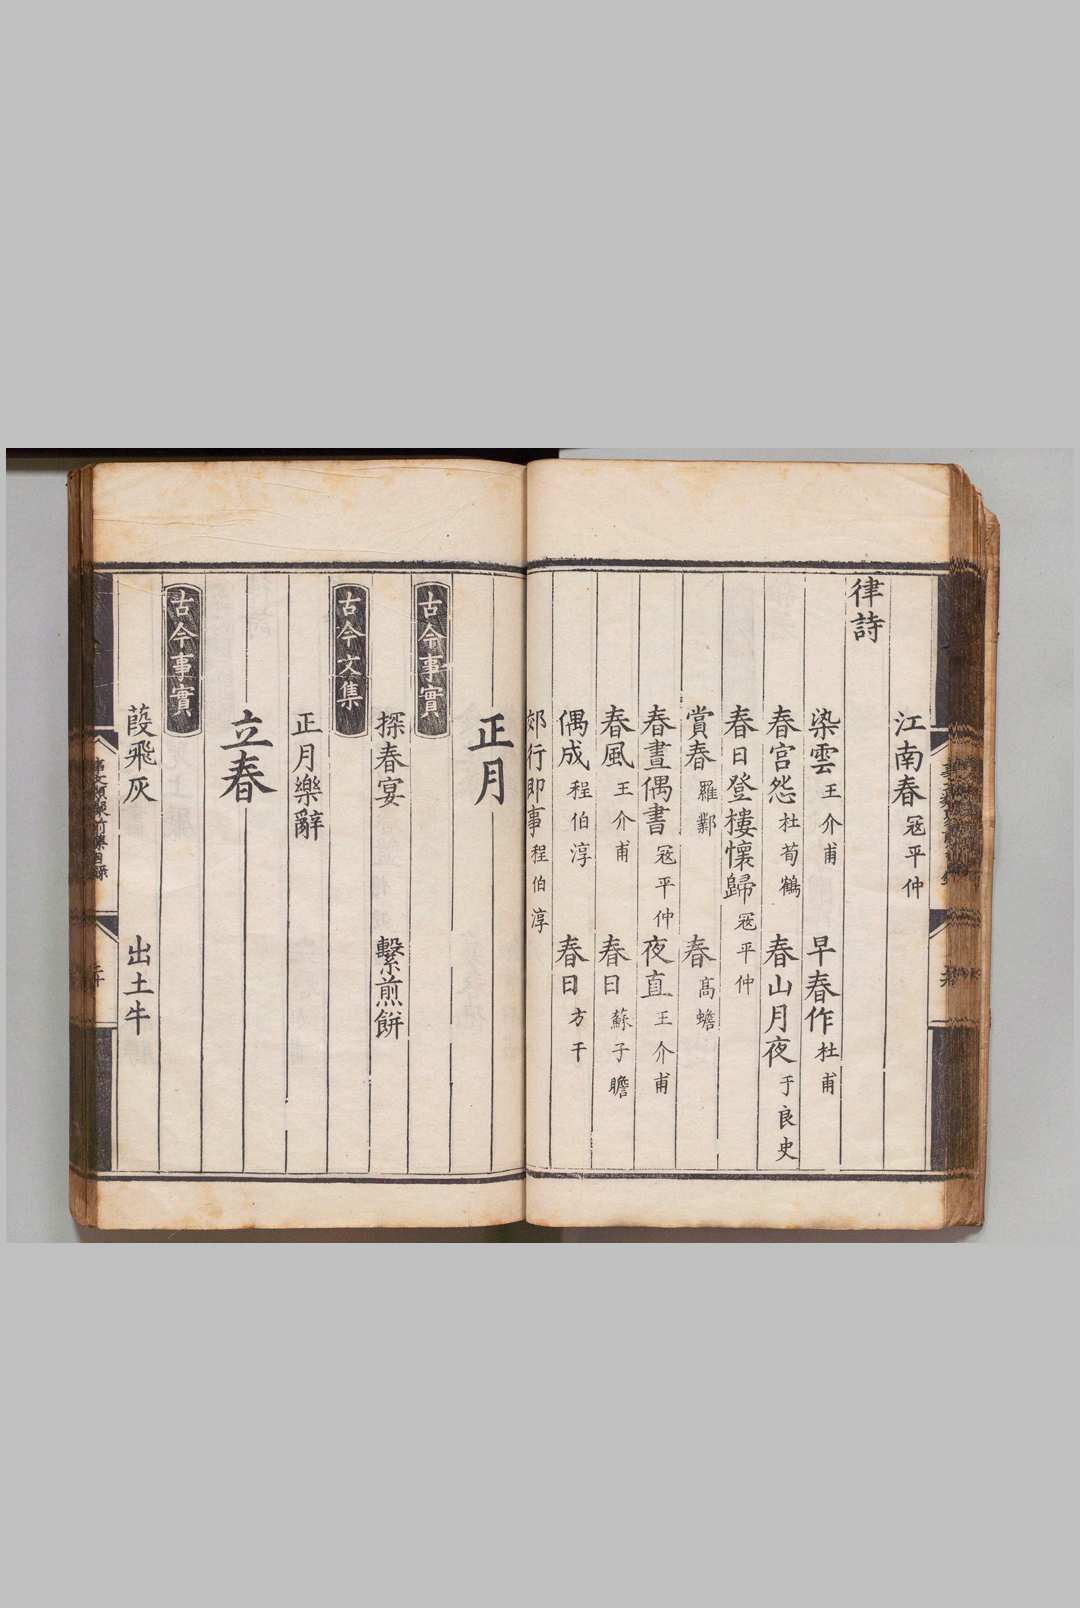 江南春 冦平仲
律詩
染雲 王介甫 早春作 杜甫
春宮怨 杜荀鶴 春山月夜 于良史
春日登樓懷歸 冦平仲
賞春 羅鄴 春 高蟾
春晝偶書 冦平仲 夜直 王介甫
春風 王介甫 春日 蘇子瞻
偶成 程伯淳 春日 方干
郊行即事 程伯淳
正月
古今事實
探春宴 繫煎餅
古今文集
正月樂辭
立春
古今事實
葭飛灰 出土牛